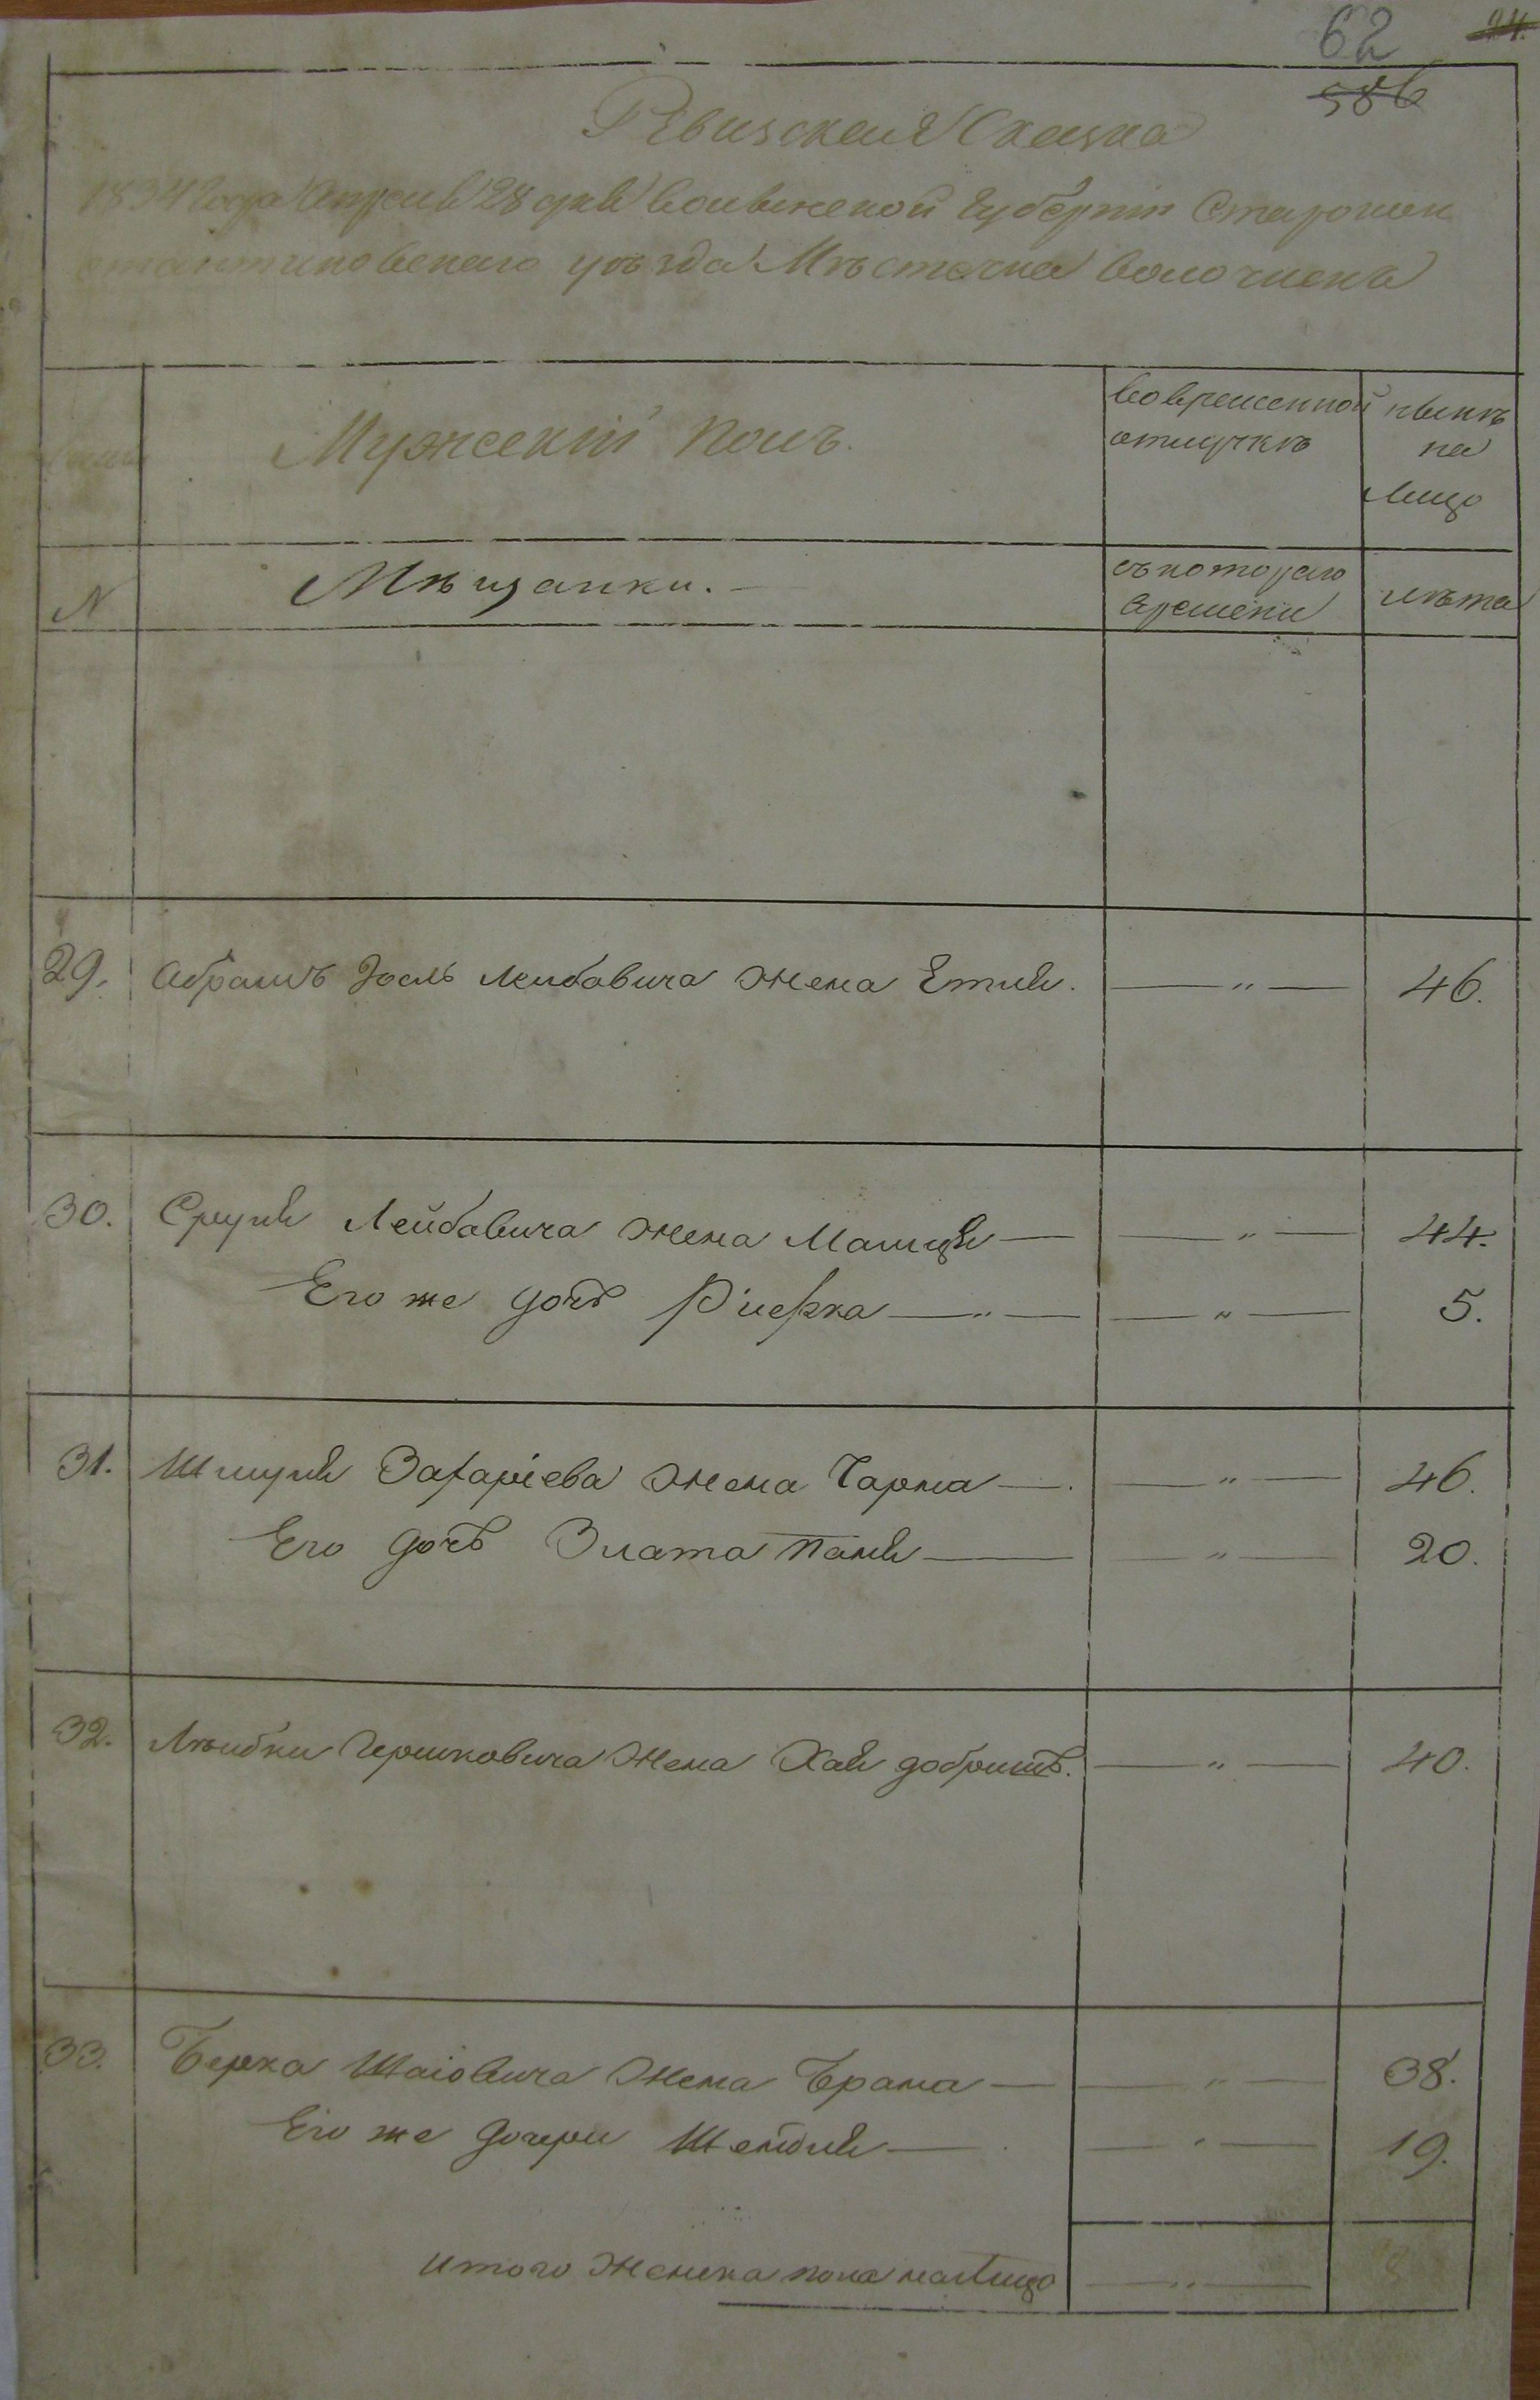 62 24.
586
Ревизская Сказка
1834 года Апреля 28 дня Волынской Губерніи Старокон
стантиновскаго уѣзда Мѣстечка Волочискъ
Мужескій полъ.
Во временной
отлучкѣ
нынѣ
на
лицо
N
Мѣщанки. —
съ котораго
времени
лѣта
29. Абрамъ Іосль Лейбавича жена Етля. — " — 46.
30. Сруля Лейбавича жена Малця — — " — 44.
Его же дочь Ривка — " — — " — 5.
31. Шмуля Захаріева жена Чарна — . — " — 46.
Его дочь Злата Паня — — " — 20.
32. Лейбки Гершковича жена Хая добришъ. — " — 40.
33. Берка Шаіовича жена Брана — — " — 38.
Его же дочери Шейдля — — " — 19.
Итого женска пола налицо — " — 8